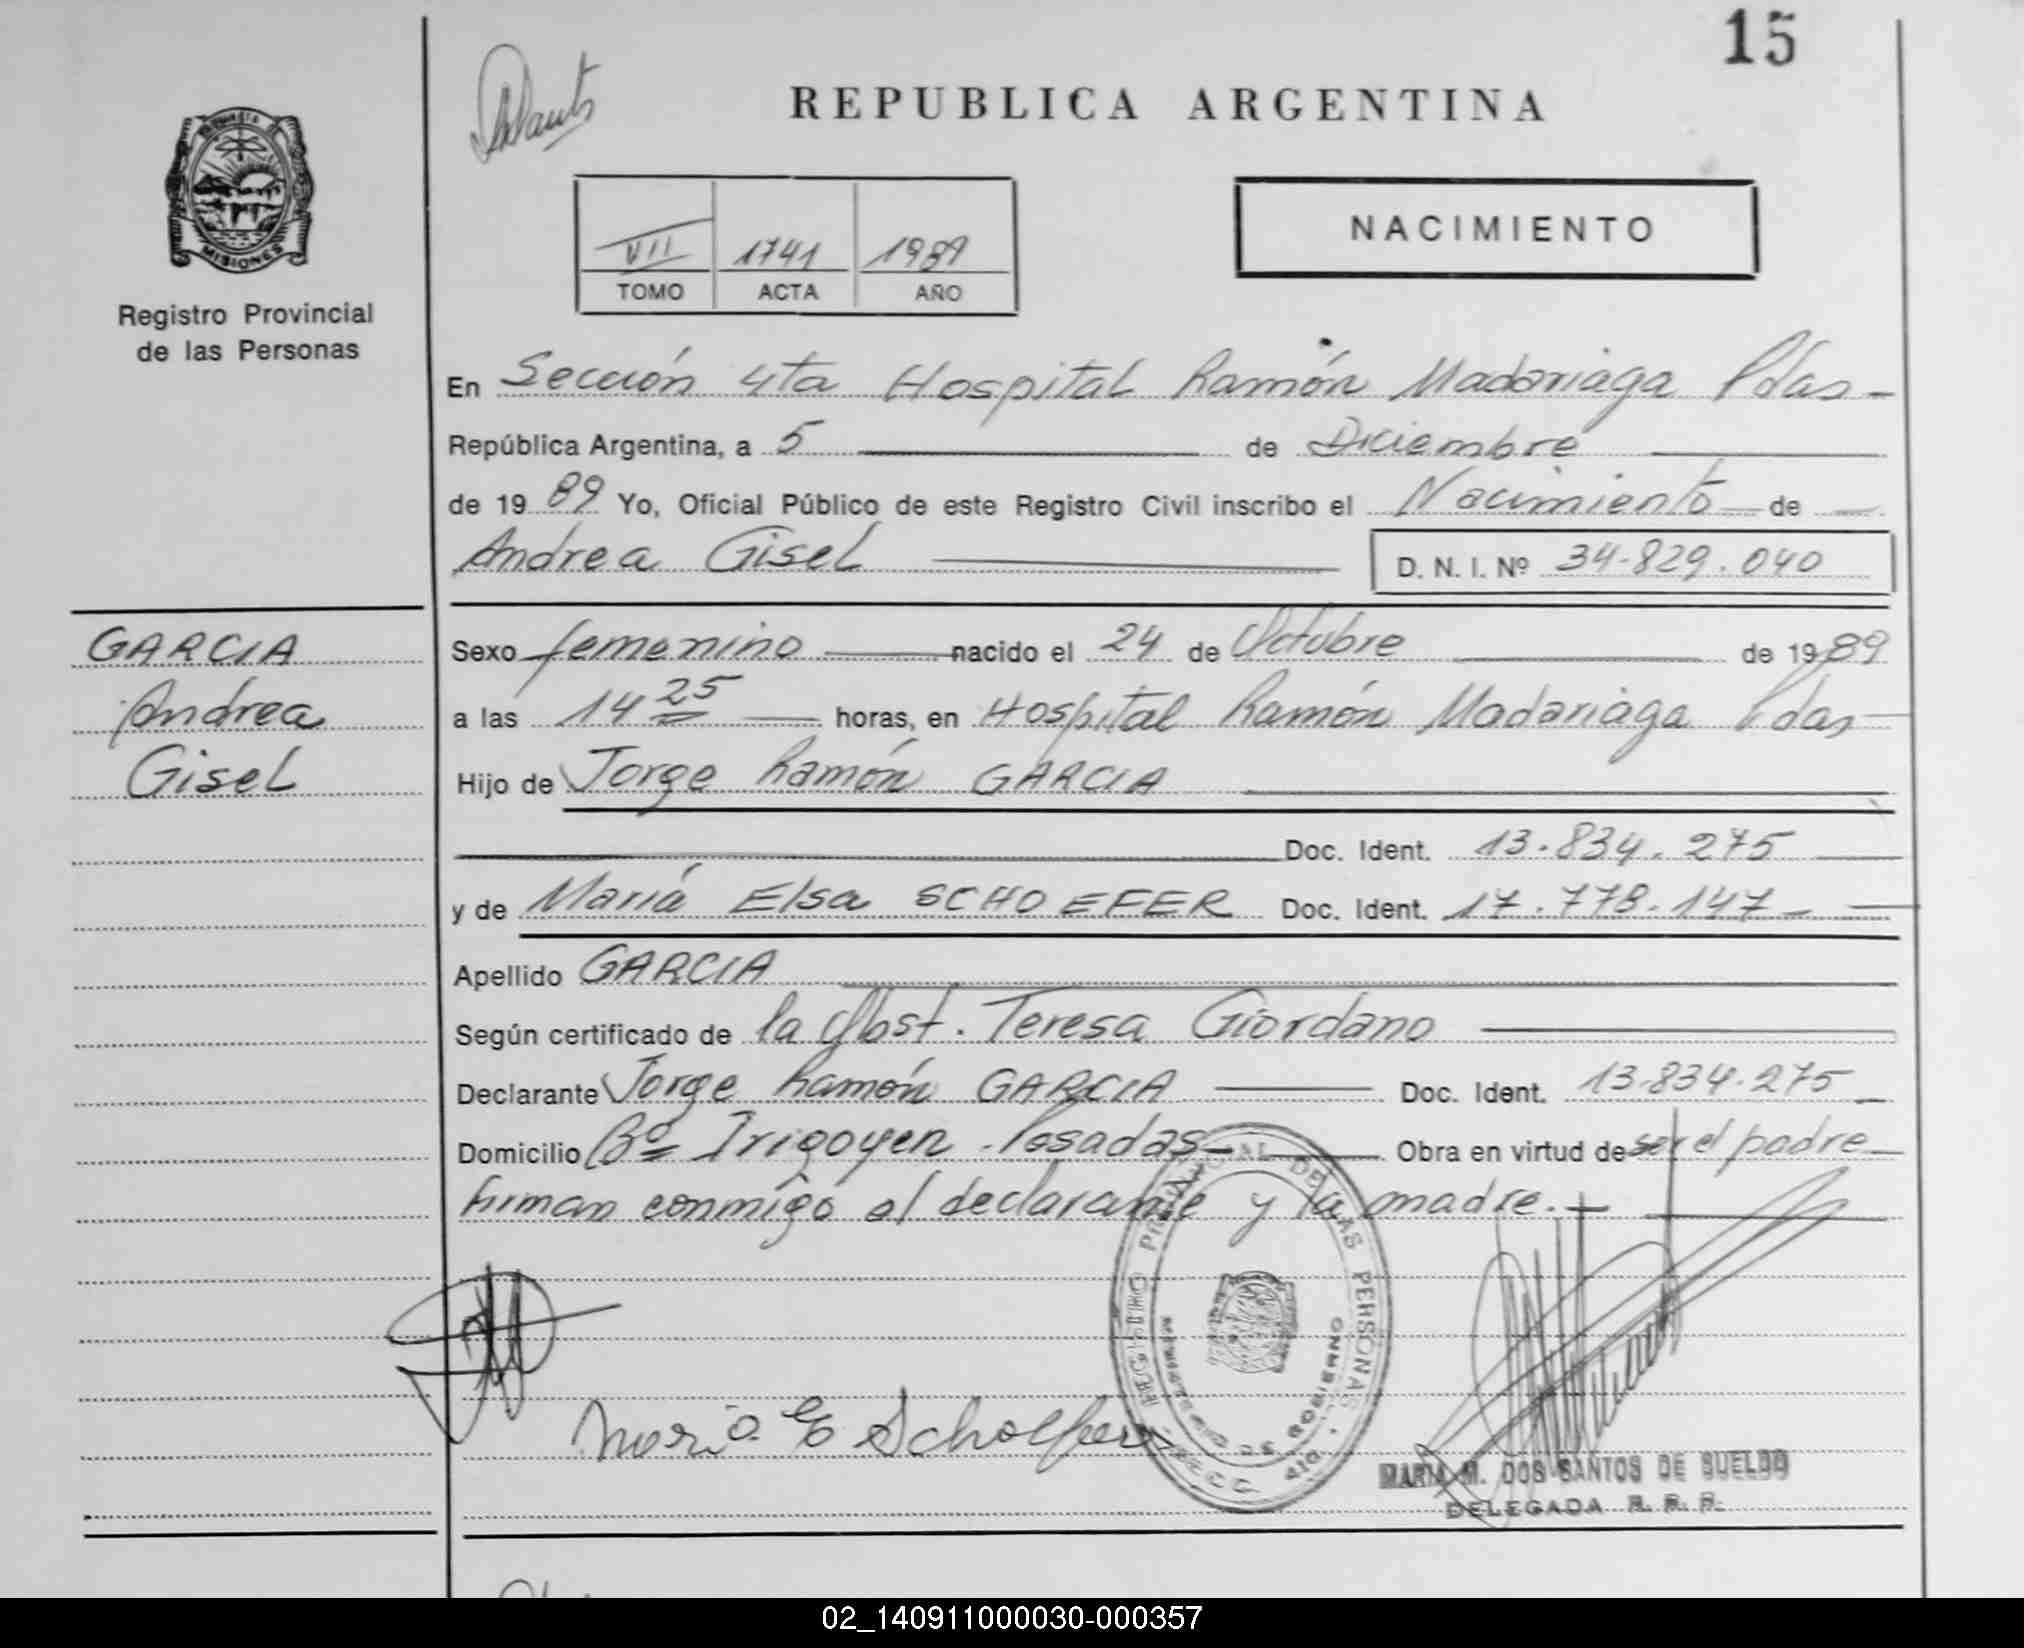 15
REPUBLICA ARGENTINA
NACIMIENTO
VII 1741 1989
TOMO ACTA AÑO
MISIONES
Registro Provincial
de las Personas
En Sección 4ta Hospital Ramón Madariaga Pdas-
República Argentina, a 5 de Diciembre
de 1989 Yo, Oficial Público de este Registro Civil inscribo el Nacimiento de
Andrea Gisel D. N. I. Nº 34-829.040
GARCIA
Andrea
Gisel
Sexo femenino nacido el 24 de Octubre de 1989
a las 14 25 horas, en Hospital Ramón Madariaga Pdas-
Hijo de Jorge Ramón GARCIA
Doc. Ident. 13.834.275
y de María Elsa SCHOEFER Doc. Ident. 17.778.147-
Apellido GARCIA
Según certificado de la Obst. Teresa Giordano
Declarante Jorge Ramón GARCIA Doc. Ident. 13.834.275
Domicilio Bº Irigoyen - Posadas- Obra en virtud de ser el padre
firman conmigo el declarante y la madre.-
REGISTRO PROVINCIAL DE LAS PERSONAS
DE GOBIERNO
Maria E Schoefer
MARIA M. DOS SANTOS DE SUELDO
DELEGADA R. P. P.
02_140911000030-000357